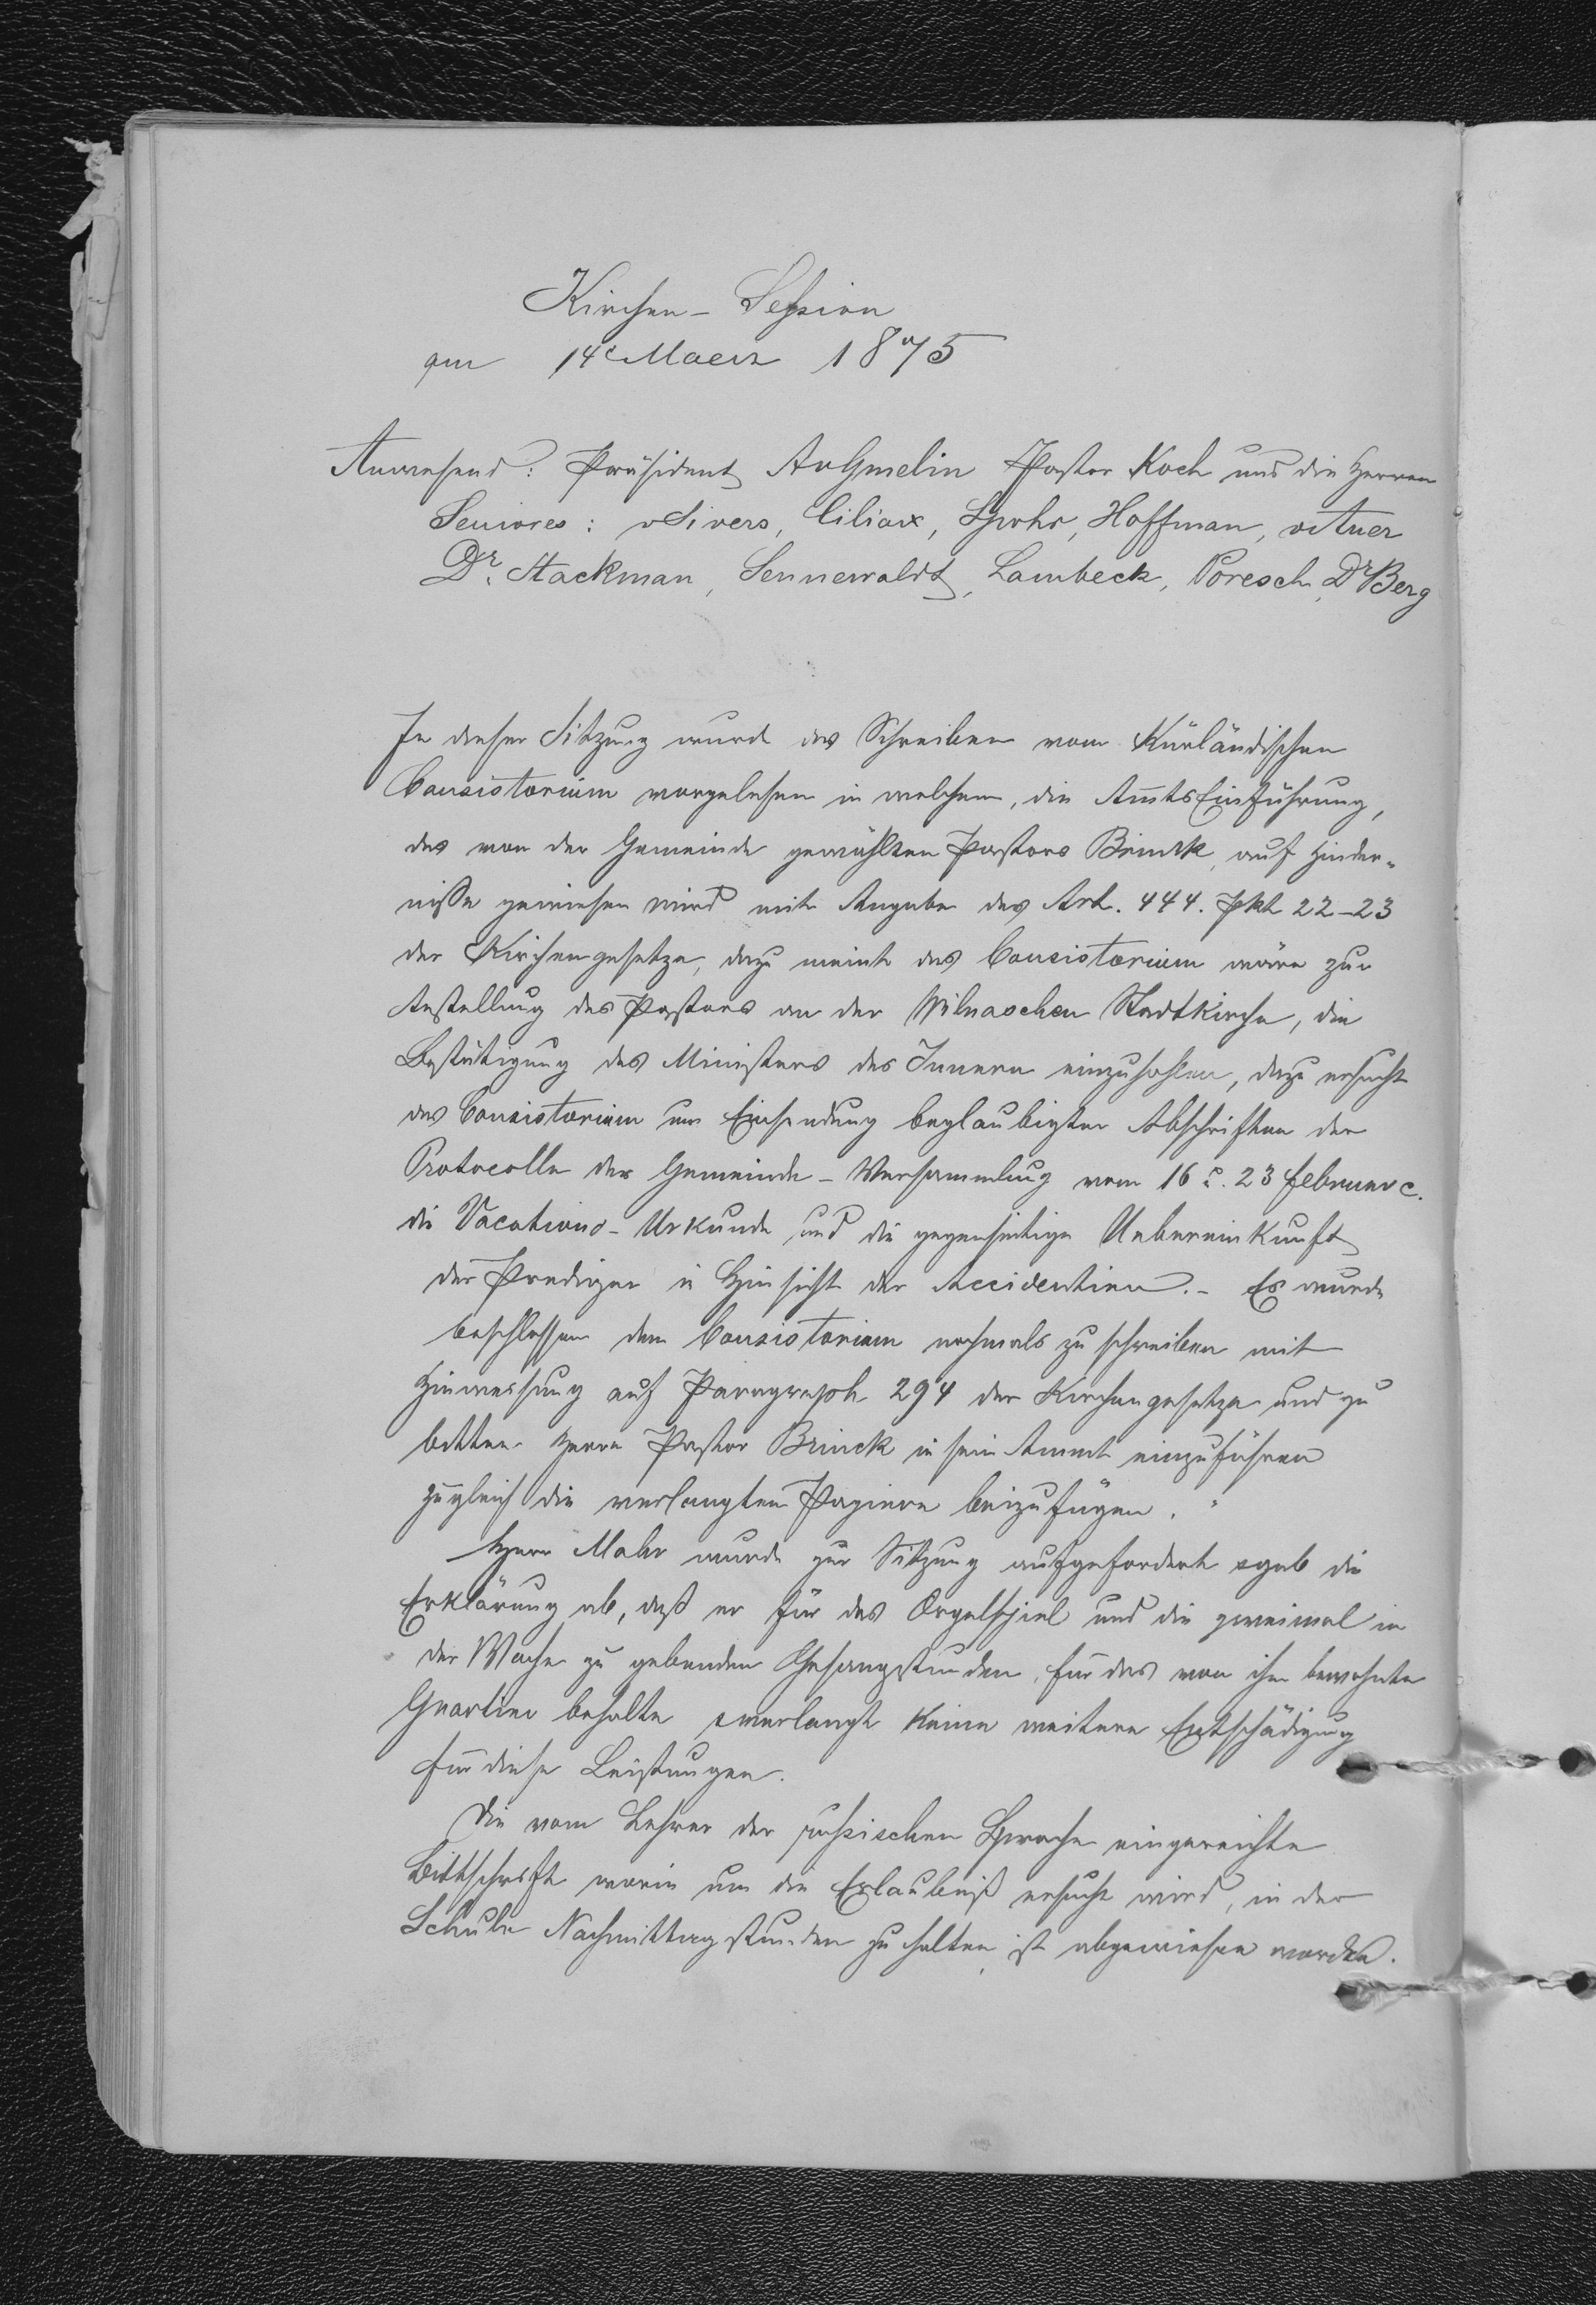 Kirchen-Session
am 14t Maerz 1875
Anwesend: Präsident AvGmelin Pastor Koch und die Herren
Seniores: vSivers, Ciliax, Spohr, Hoffman,
Dr. Stackman, Sennewaldt, Lambeck, Poresch, Dr Berg
In dieser Sitzung wurde das Schreiben vom Kurländischen
Consistorium vorgelesen in welchem, die AmtsEinführung,
des von der Gemeinde gewählten Pastors Brinck, auf Hinder-
nisse gewiesen wird mit Angabe des Art. 444. Pkt 22-23
der Kirchengesetze, dazu meint das Consistorium wäre zur
Anstellung des Pastors an der Wilnaschen Stadtkirche, die
Bestätigung des Ministers des Innern einzuholen, dazu ersucht
das Consistorium um Einsendung beglaubigter Abschriften der
Protocolle der Gemeinde-Versammlung vom 16 u. 23 Februar c.
die Vocations-Urkunde und die gegenseitige Uebereinkunft
der Prediger in Hinsicht der Accidentien.- Es wurde
beschlossen dem Consistorium nochmals zu schreiben mit
Hinweisung auf Paragraph 294 der Kirchengesetze und zu
bitten Herrn Pastor Brinck in sein Ammt einzuführen
zugleich die verlangten Papiere beizufügen.
Herr Mohr wurde zur Sitzung aufgefordert u gab die
Erklärung ab, daß er für das Orgelspiel und die zweimal in
der Woche zu gebenden Gesangstunden, für das von ihm bewohnte
Quartier behalte u verlangt keine weitere Entschädigung
für diese Leistungen.
Die vom Lehrer der russischen Sprache eingereichte
Bittschrift worin um die Erlaubniß ersucht wird, in der
Schule Nachmittagstunden zu halten, ist abgewiesen worden.